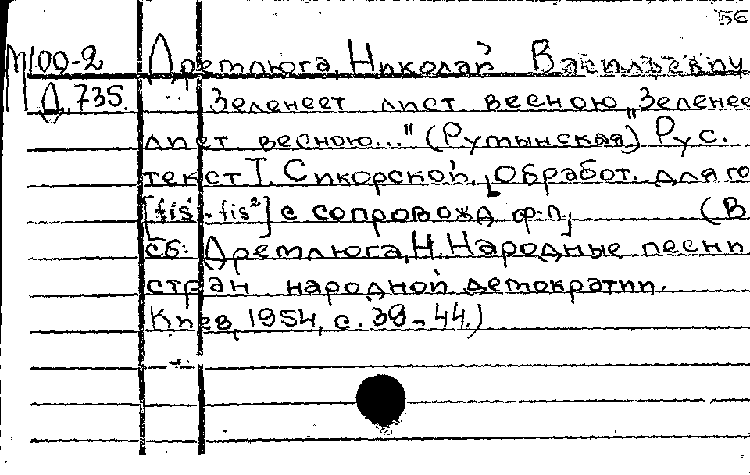 М100-2 Дремлюга, Николай Васильевич
Д 735. Зеленеет лист весною „Зеленее
лист весною..." (Румынская) Рус.
текст Т. Сикорской. Обработ. для го
[fis¹-fis²] с сопровожд ф-п. (В
сб: Дремлюга, Н. Народные песни
стран народной демократии.
Киев, 1954, с. 39-44.)